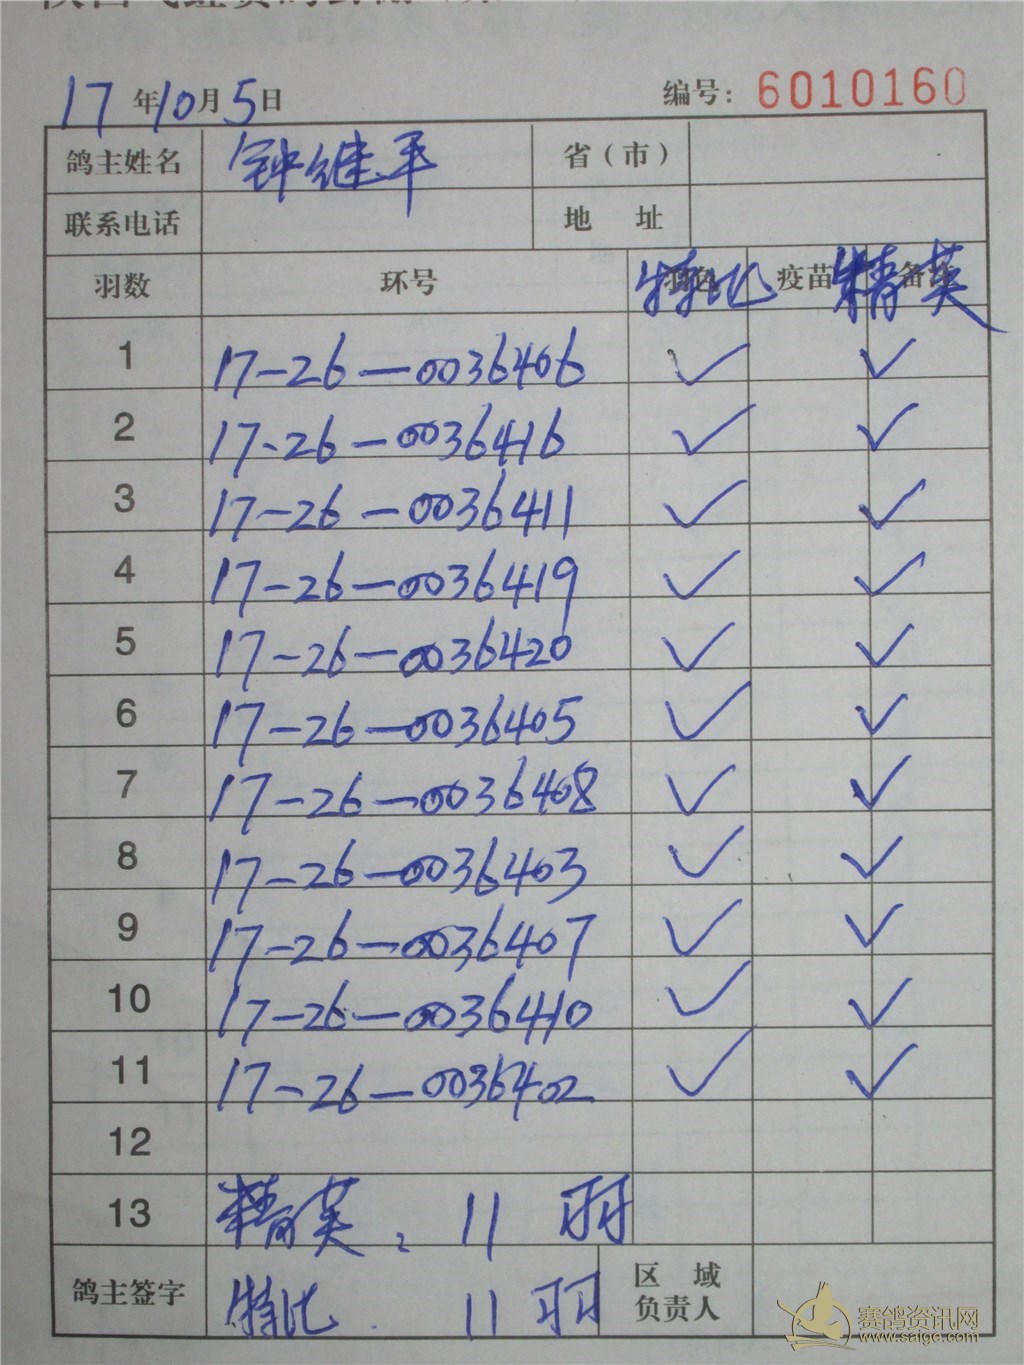 17年10月5日 编号: 6010160
鸽主姓名 钟继平 省（市）
联系电话 地 址
羽数 环号 特比 疫苗 精英 备注
1 17-26-0036406 ✓ ✓
2 17-26-0036416 ✓ ✓
3 17-26-0036411 ✓ ✓
4 17-26-0036419 ✓ ✓
5 17-26-0036420 ✓ ✓
6 17-26-0036405 ✓ ✓
7 17-26-0036408 ✓ ✓
8 17-26-0036403 ✓ ✓
9 17-26-0036407 ✓ ✓
10 17-26-0036410 ✓ ✓
11 17-26-0036402 ✓ ✓
12
13 精英、11羽
鸽主签字 特比. 11羽 区 域
负责人
赛鸽资讯网
www.saigc.com